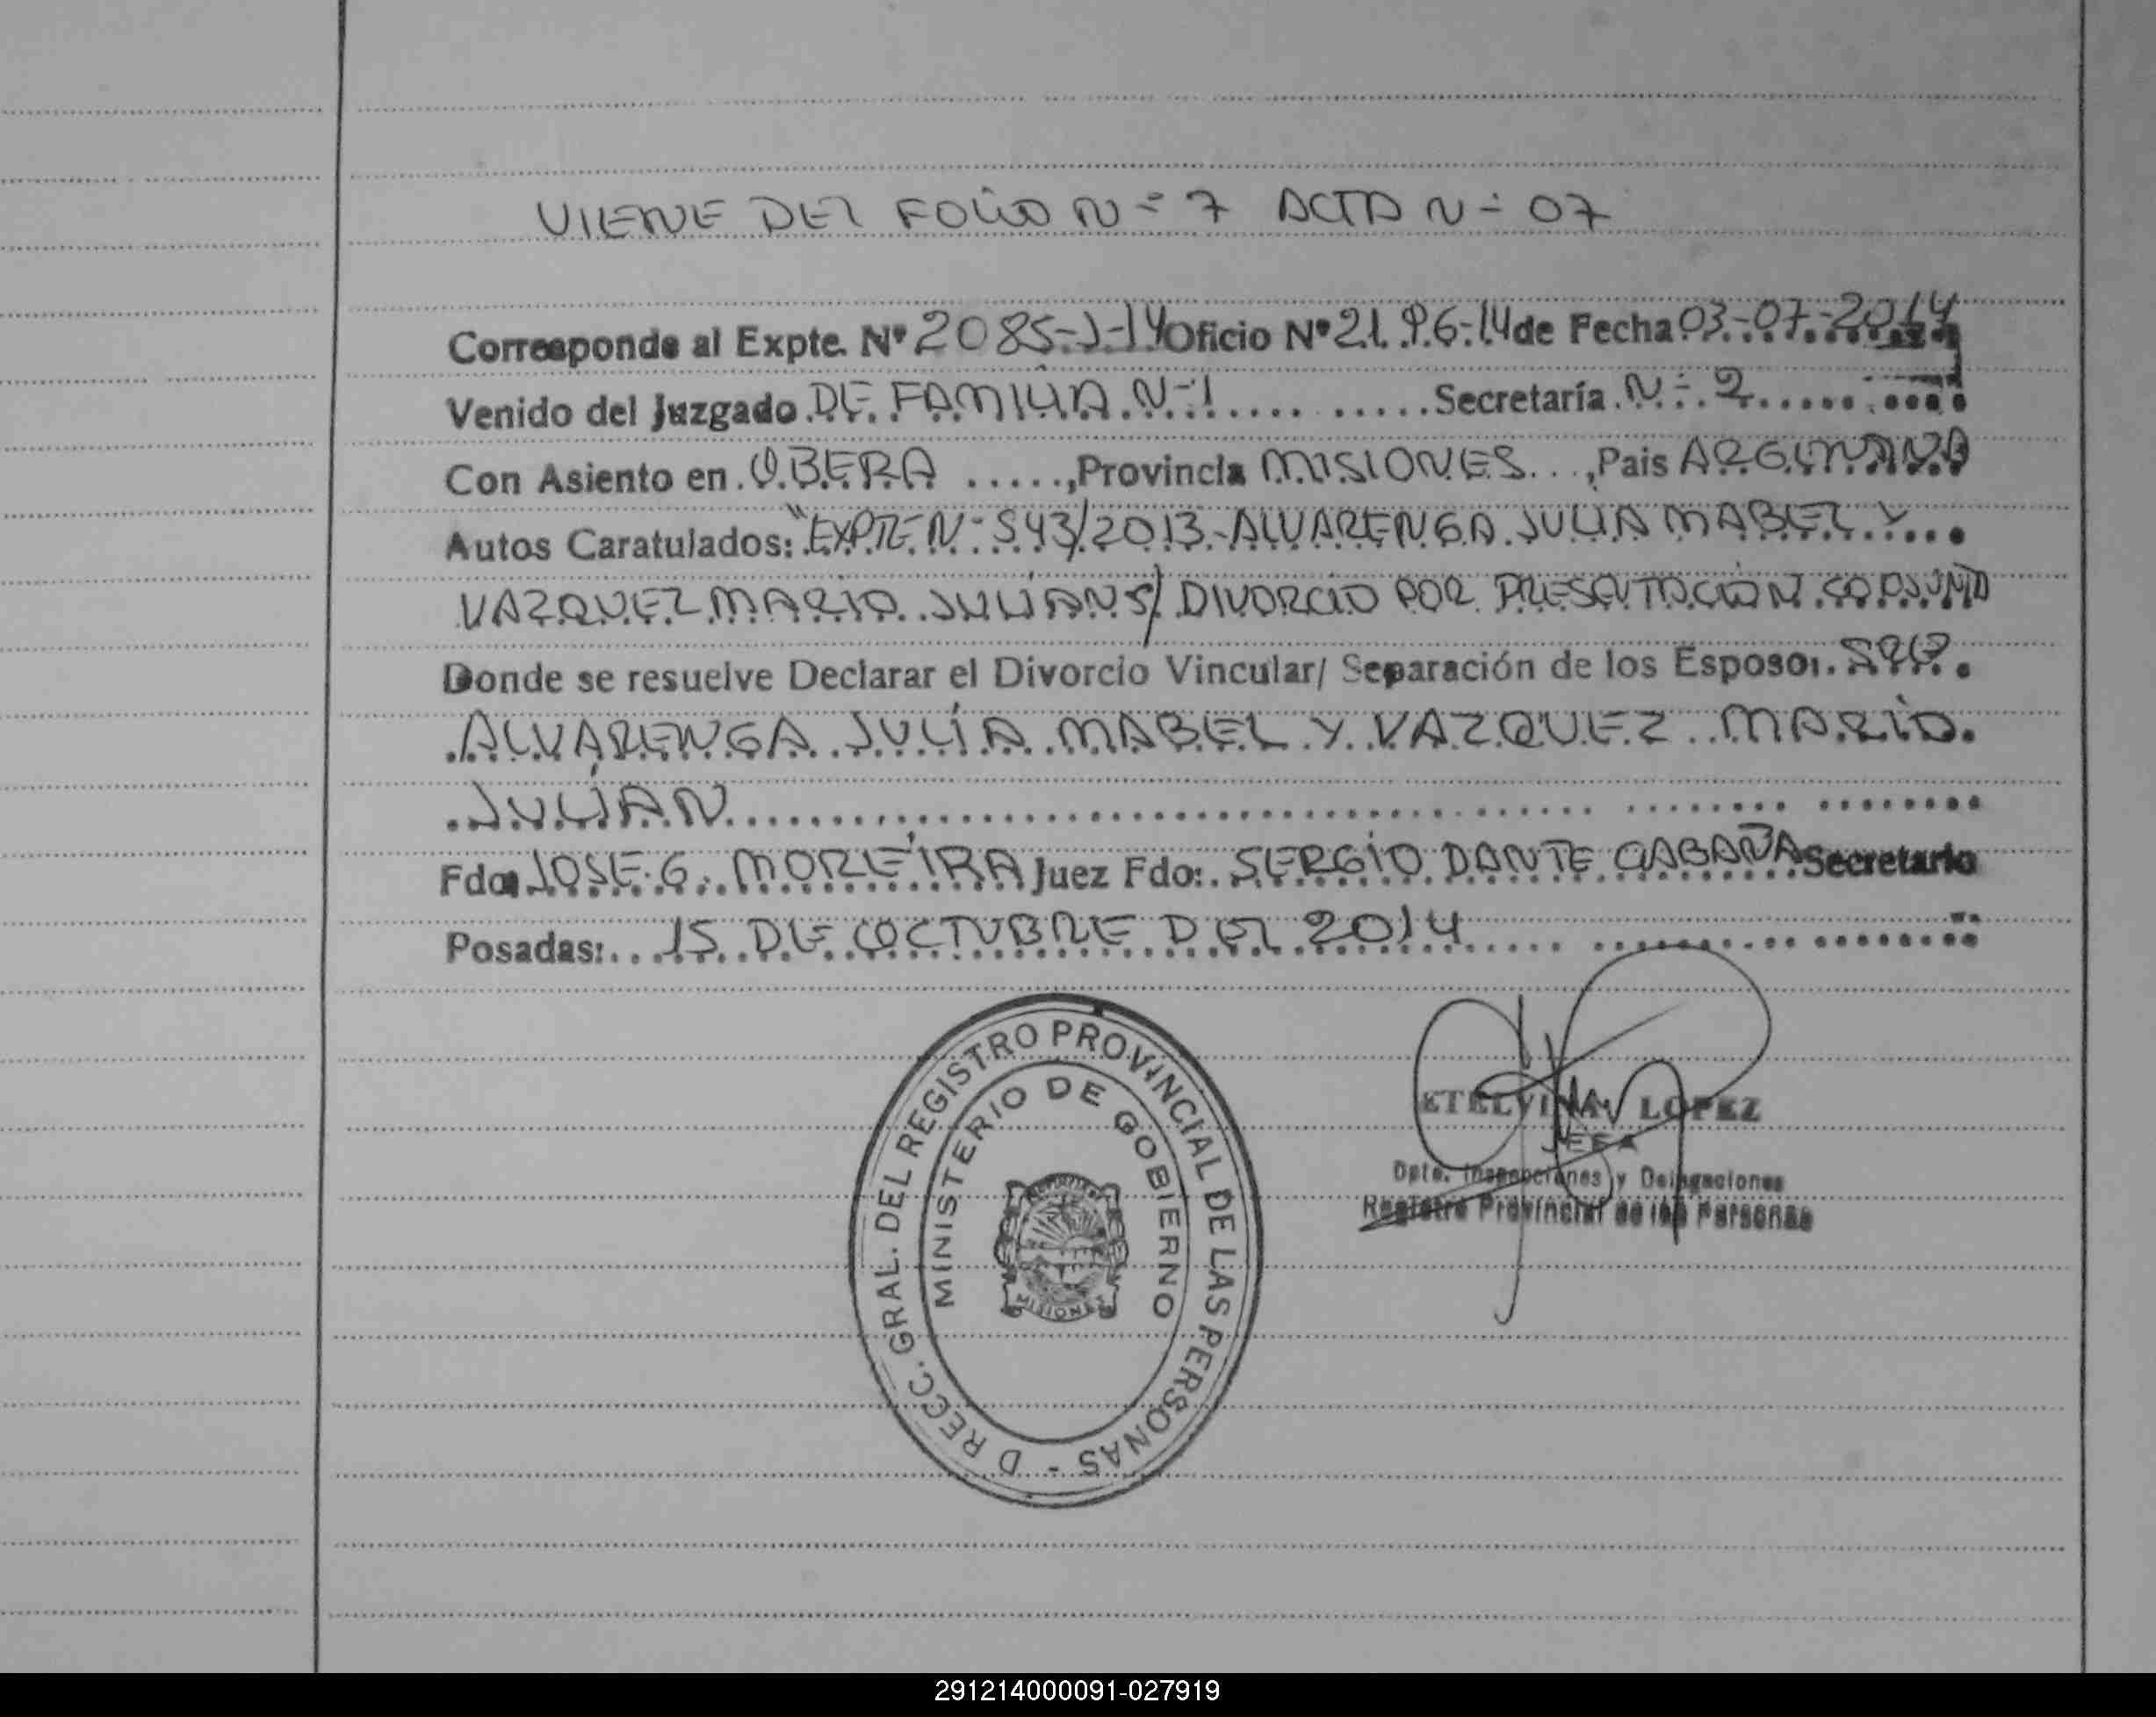 VIENE DEL FOLIO N= 7 ACTA N= 07
Corresponde al Expte. Nº 2085-J-14 Oficio Nº 2196-14 de Fecha 03-07-2014
Venido del Juzgado DE FAMILIA N-1 Secretaría N= 2
Con Asiento en OBERA ,Provincia MISIONES ,Pais ARGENTINA
Autos Caratulados: "EXPTE N= 543/2013-ALVARENGA JULIA MABEL Y
VAZQUEZ MARIO JULIAN S/ DIVORCIO POR PRESENTACION CONJUNTA
Donde se resuelve Declarar el Divorcio Vincular/ Separación de los Esposos.
ALVARENGA JULIA MABEL Y VAZQUEZ MARIO
JULIAN
Fdo: JOSE G. MOREIRA Juez Fdo: SERGIO DANTE CABAÑA Secretario
Posadas: 15 DE OCTUBRE DEL 2014
D RECC. GRAL. DEL REGISTRO PROVINCIAL DE LAS PERSONAS -
MINISTERIO DE GOBIERNO
MISIONES
ETELVINA LOPEZ
JEFA
Dpto. Inspecciones y Delegaciones
Registro Provincial de las Personas
291214000091-027919